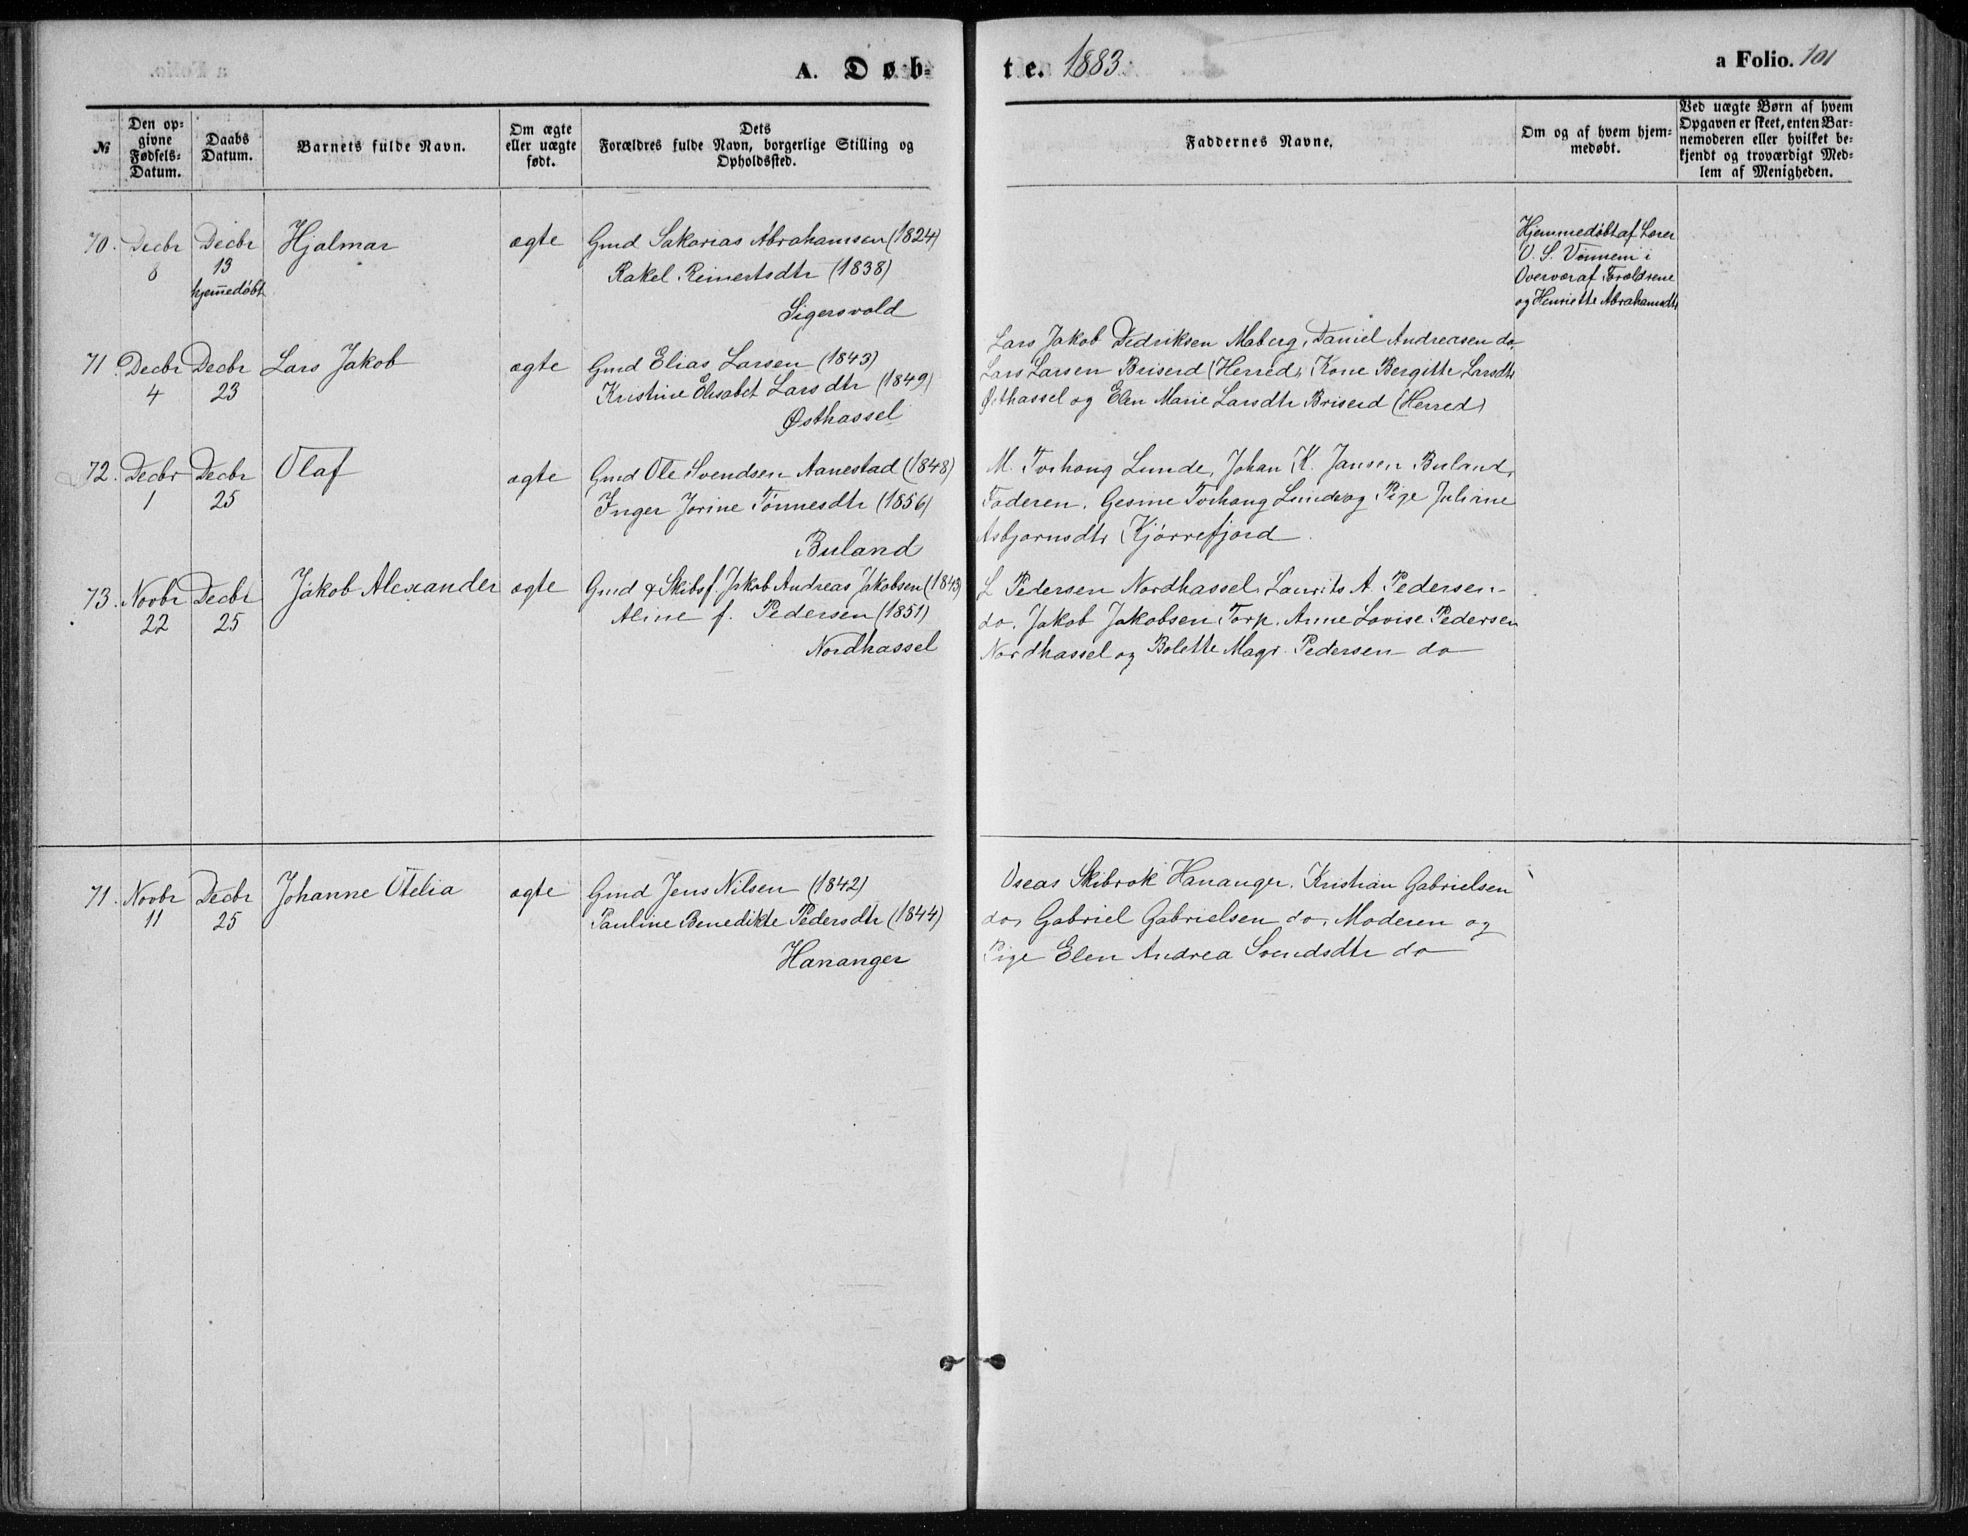 A. Døb-
te. 1883.
a Folio. 101
№
Den op-
givne
Fødsels-
Datum.
Daabs
Datum.
Barnets fulde Navn.
Om ægte
eller uægte
født.
Dets
Forældres fulde Navn, borgerlige Stilling og
Opholdssted.
Faddernes Navne.
Om og af hvem hjem-
medøbt.
Ved uægte Børn af hvem
Opgaven er skeet, enten Bar-
nemoderen eller hvilket be-
kjendt og troværdigt Med-
lem af Menigheden.
70. Decbr 8
Decbr 13
hjem̅edøbt
Hjalmar
ægte
Gmd Sakarias Abrahamsen (1824)
Rakel Reinertsdtr (1838)
Sigersvold
Hjemmedøbt af Lærer
O. S. Vönnem i
Overvær af Forældrene
og Henriette Abrahamsdtr
71. Decbr 4
Decbr 23
Lars Jakob
ægte
Gmd Elias Larsen (1843)
Kristine Elisabet Larsdtr (1849)
Østhassel
Lars Jakob Dedriksen Maberg, Daniel Andreasen do
Lars Larsen Briserd (Herred), Kone Bergitte Larsdtr
Østhassel og Elen Marie Larsdtr Briserd (Herred)
72. Decbr 1
Decbr 25
Olaf
ægte
Gmd Ole Svendsen Aanestad (1848)
Inger Jorine Tönnesdtr (1856)
Buland
M. Torkong Lunde, Johan K. Jansen Buland,
Faderen, Gesine Torkong Lunde og Pige Juliane
Asbjørnsdtr Kjörrefjord.
73. Novbr 22
Decbr 25
Jakob Alexander
ægte
Gmd & Skibsf. Jakob Andreas Jakobsen (1843)
Aline f. Pedersen (1851)
Nordhassel
L Pedersen Nordhassel, Laurits A. Pedersen-
do, Jakob Jakobsen Torp, Anne Lovise Pedersen
Nordhassel og Bolette Magr. Pedersen do
71. Novbr 11
Decbr 25
Johanne Otelia
ægte
Gmd Jens Nilsen (1842)
Pauline Benedikte Pedersdtr (1844)
Hananger
Oseas Skibrok Hananger, Kristian Gabrielsen
do, Gabriel Gabrielsen do, Moderen og
Pige Elen Andrea Svendsdtr do